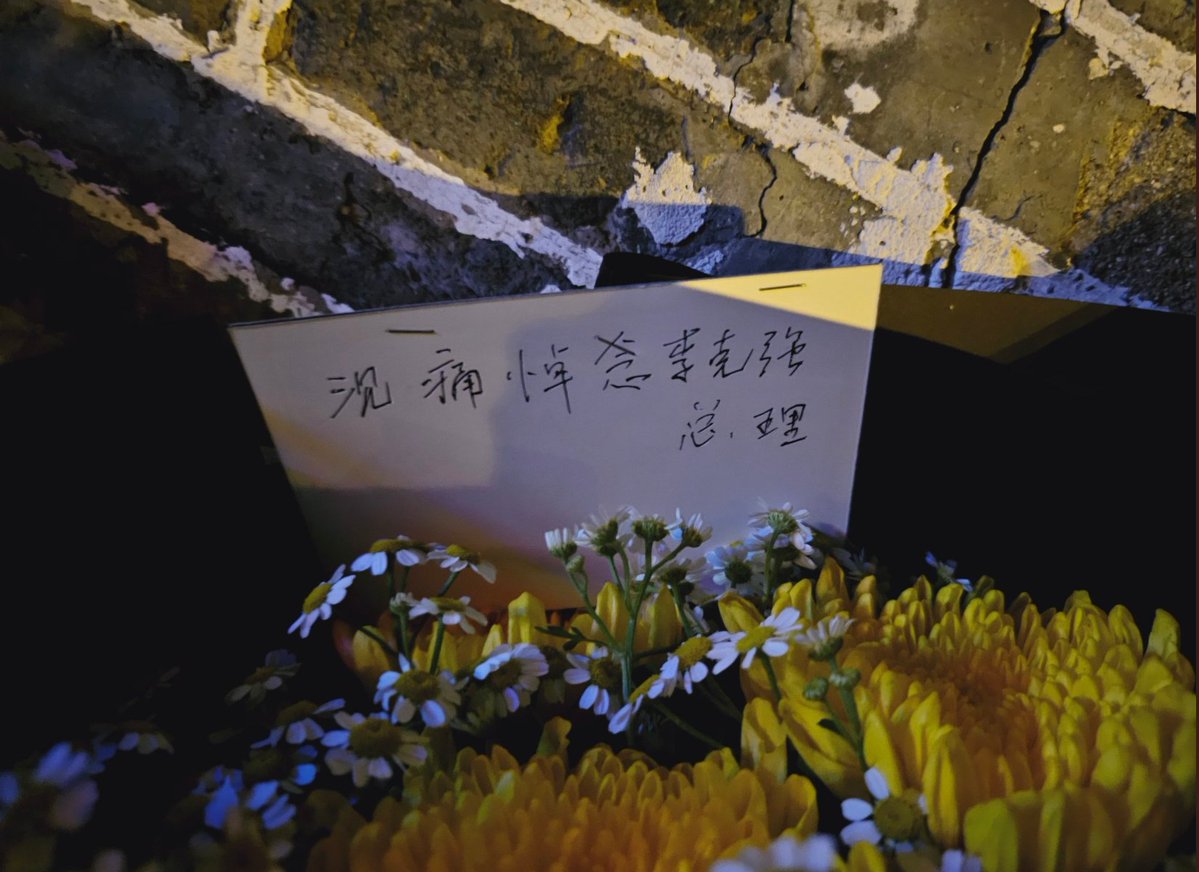 沉痛悼念李克强
总理